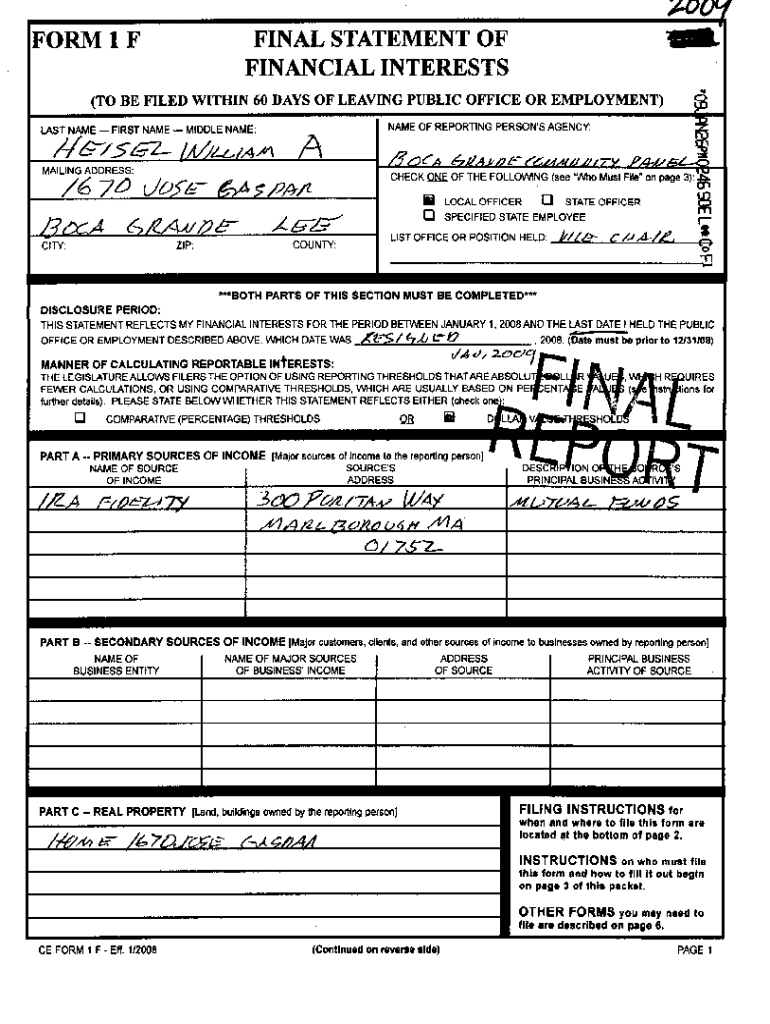 2009
FORM 1 F
FINAL STATEMENT OF
FINANCIAL INTERESTS
(TO BE FILED WITHIN 60 DAYS OF LEAVING PUBLIC OFFICE OR EMPLOYMENT)
LAST NAME — FIRST NAME — MIDDLE NAME:
HEISEL WILLIAM A
MAILING ADDRESS:
1670 JOSE GASPAR
BOCA GRANDE LEE
CITY: ZIP: COUNTY:
NAME OF REPORTING PERSON'S AGENCY:
BOCA GRANDE COMMUNITY PANEL
CHECK ONE OF THE FOLLOWING (see "Who Must File" on page 3):
LOCAL OFFICER STATE OFFICER
SPECIFIED STATE EMPLOYEE
LIST OFFICE OR POSITION HELD: VICE CHAIR
***BOTH PARTS OF THIS SECTION MUST BE COMPLETED***
DISCLOSURE PERIOD:
THIS STATEMENT REFLECTS MY FINANCIAL INTERESTS FOR THE PERIOD BETWEEN JANUARY 1, 2008 AND THE LAST DATE I HELD THE PUBLIC
OFFICE OR EMPLOYMENT DESCRIBED ABOVE, WHICH DATE WAS RESIGNED , 2008. (Date must be prior to 12/31/08)
JAN, 2009
MANNER OF CALCULATING REPORTABLE INTERESTS:
THE LEGISLATURE ALLOWS FILERS THE OPTION OF USING REPORTING THRESHOLDS THAT ARE ABSOLUTE DOLLAR VALUES, WHICH REQUIRES
FEWER CALCULATIONS, OR USING COMPARATIVE THRESHOLDS, WHICH ARE USUALLY BASED ON PERCENTAGE VALUES (see instructions for
further details). PLEASE STATE BELOW WHETHER THIS STATEMENT REFLECTS EITHER (check one):
COMPARATIVE (PERCENTAGE) THRESHOLDS OR DOLLAR VALUE THRESHOLDS
FINAL
REPORT
PART A -- PRIMARY SOURCES OF INCOME [Major sources of income to the reporting person]
NAME OF SOURCE SOURCE'S DESCRIPTION OF THE SOURCE'S
OF INCOME ADDRESS PRINCIPAL BUSINESS ACTIVITY
IRA FIDELITY 300 PURITAN WAY MUTUAL FUNDS
MARLBOROUGH MA
01752
PART B -- SECONDARY SOURCES OF INCOME [Major customers, clients, and other sources of income to businesses owned by reporting person]
NAME OF NAME OF MAJOR SOURCES ADDRESS PRINCIPAL BUSINESS
BUSINESS ENTITY OF BUSINESS' INCOME OF SOURCE ACTIVITY OF SOURCE
PART C -- REAL PROPERTY [Land, buildings owned by the reporting person]
HOME 1670 JOSE GASPAR
FILING INSTRUCTIONS for
when and where to file this form are
located at the bottom of page 2.
INSTRUCTIONS on who must file
this form and how to fill it out begin
on page 3 of this packet.
OTHER FORMS you may need to
file are described on page 6.
CE FORM 1 F - Eff. 1/2008 (Continued on reverse side) PAGE 1